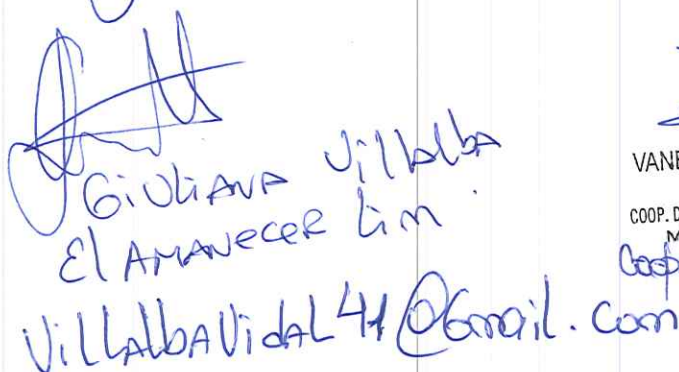 Giuliana Villalba
El AMANECER Lim
VillalbaVidal41@Gmail.com
VANE
COOP. D
M
Coop